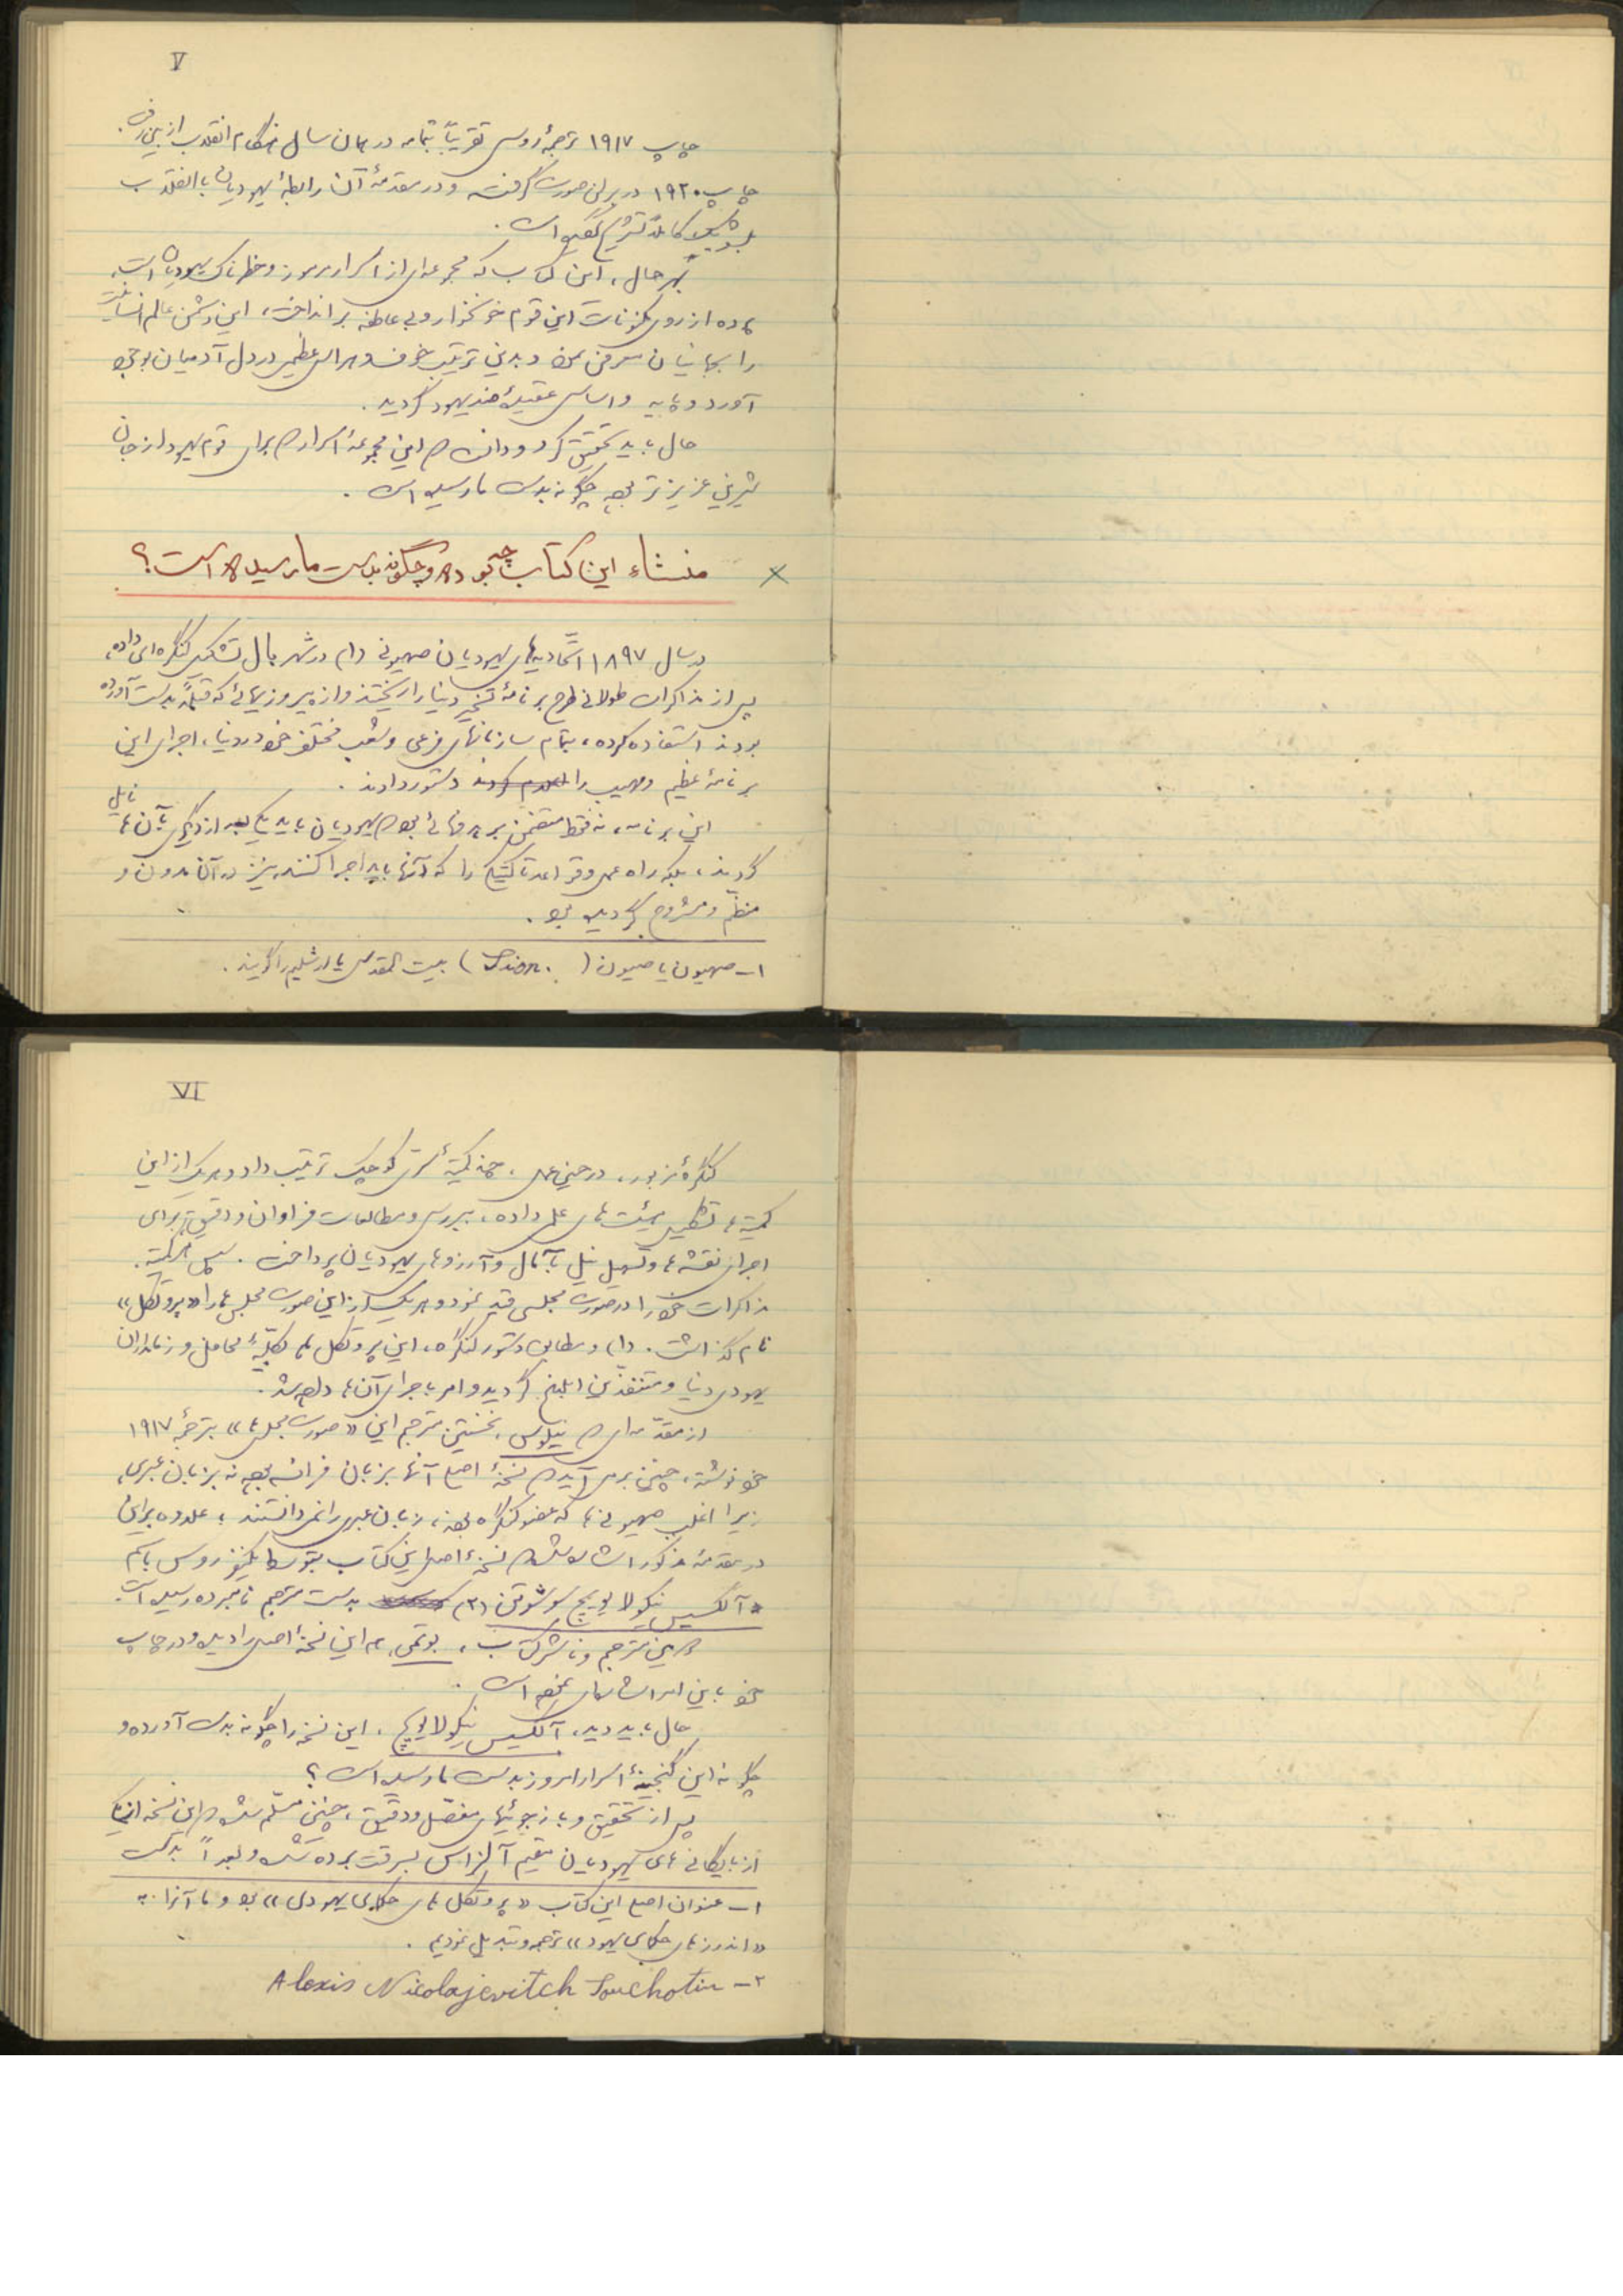 V
چاپ ۱۹۱۷ ترجمهٔ روسی تقریباً بتمامه در همان سال هنگام انقلاب از بین رفت.
چاپ ۱۹۲۰ در برلن صورت گرفته و در مقدمهٔ آن رابطهٔ یهودیان با انقلاب
بلشویکی کاملاً تشریح گردیده است.
بهر حال، این کتاب که مجموعه‌ای از اسرار مرموز و خطرناک یهودیان است،
پرده از روی مکنونات این قوم خونخوار و بی عاطفه برانداخت، این دشمن عالم انسانیت
را بجهانیان معرفی نموده و بدین ترتیب خوف و هراس عظیمی در دل آدمیان بوجود
آورد و پایه و اساس عقیدهٔ ضد یهود گردید.
حال باید تحقیق کرد و دانست که این مجموعهٔ اسرار که برای قوم یهود از جان
شیرین عزیزتر بوده چگونه بدست ما رسیده است.
× منشاء این کتاب چه بوده و چگونه بدست ما رسیده است؟
در سال ۱۸۹۷ اتّحادیه‌های یهودیان صهیونی (۱) در شهر بال تشکیل کنگره‌ای داده،
پس از مذاکرات طولانی طرح برنامهٔ تسخیر دنیا را ریختند و از پیروزیهائی که قبلاً بدست آورده
بودند استفاده کرده، بتمام سازمانهای فرعی و شعب مختلف خود در دنیا، اجرای این
برنامهٔ عظیم و مهیب را دستور دادند.
این برنامه، نه فقط متضمن بر هدفهائی بود که یهودیان باید یکی بعد از دیگری بآن‌ها نایل
گردند، بلکه راه عمل و قواعد تاکتیکی را که آنها باید اجرا کنند نیز در آن مدون و
منظّم و مشروح گردیده بود.
۱ـ صهیون یا صیون (Sion.) بیت المقدس یا اورشلیم را گویند.
VI
کنگرهٔ مزبور، در حین عمل، چند کمیتهٔ سرّی کوچک ترتیب داد و هر یک از این
کمیته‌ها تشکیل هیئت‌های علمی داده، ببررسی و مطالعات فراوان و دقیقی برای
اجرای نقشه‌ها و تسهیل نیل بآمال و آرزوهای یهودیان پرداخت. سپس هر کمیته
مذاکرات خود را در صورت مجلسی قید نمود و هر یک از این صورت مجلس‌ها را «پروتکل»
نام گذاشت. (۱) و مطابق دستور کنگره، این پروتکل‌ها بکلیّهٔ محافل و زمامداران
یهودی دنیا و متنفذین ابلاغ گردید و امر باجرای آن‌ها داده شد.
از مقدّمه‌ای که نیلوس، نخستین مترجم این «صورت مجلس‌ها» بترجمهٔ ۱۹۱۷
خود نوشته، چنین برمی آید که نسخهٔ اصلی آنها بزبان فرانسه بوده نه بزبان عبری،
زیرا اغلب صهیونی‌ها که عضو کنگره بودند، زبان عبری را نمی‌دانستند؛ علاوه بر این
در مقدمهٔ مذکور اشاره شده که نسخهٔ اصلی این کتاب بتوسط یکنفر روس باسم
آلکسیس نیکولایویچ سوشوتین (۲) بدست مترجم نامبرده رسیده است.
دومین مترجم و ناشر کتاب، بوتمی، هم این نسخهٔ اصلی را دیده و در چاپ
خود باین امر اشاره‌ای نموده است.
حال باید دید، آلکسیس نیکولایویچ، این نسخه را چگونه بدست آورده و
چگونه این گنجینهٔ اسرار امروز بدست ما رسیده است؟
پس از تحقیق و بازجوئیهای مفصّل و دقیق، چنین مسلّم شده که این نسخه از یکی
از بایگانی‌های یهودیان مقیم آلزاس بسرقت برده شده و بعداً بدست
۱ـ عنوان اصلی این کتاب «پروتکل‌های حکمای یهودی» بود و ما آنرا به
«اندرزهای حکمای یهود» ترجمه و تبدیل نمودیم.
۲ـ Alexis Nicolajevitch Souchotin